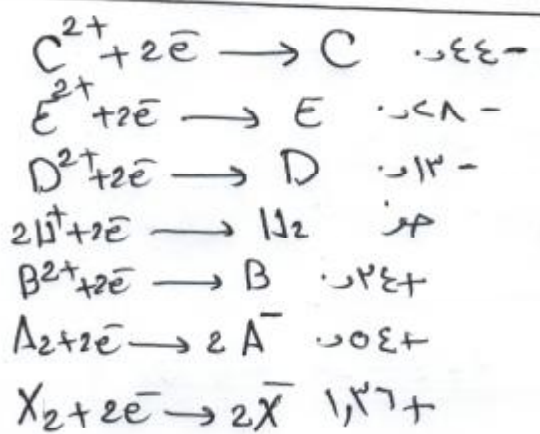 C²⁺ + 2e⁻ ⟶ C -٠,٤٤
E²⁺ + 2e⁻ ⟶ E -٠,٢٨
D²⁺ + 2e⁻ ⟶ D -٠,١٣
2H⁺ + 2e⁻ ⟶ H₂ صفر
B²⁺ + 2e⁻ ⟶ B +٠,٣٤
A₂ + 2e⁻ ⟶ 2A⁻ +٠,٥٤
X₂ + 2e⁻ ⟶ 2X⁻ +١,٣٦